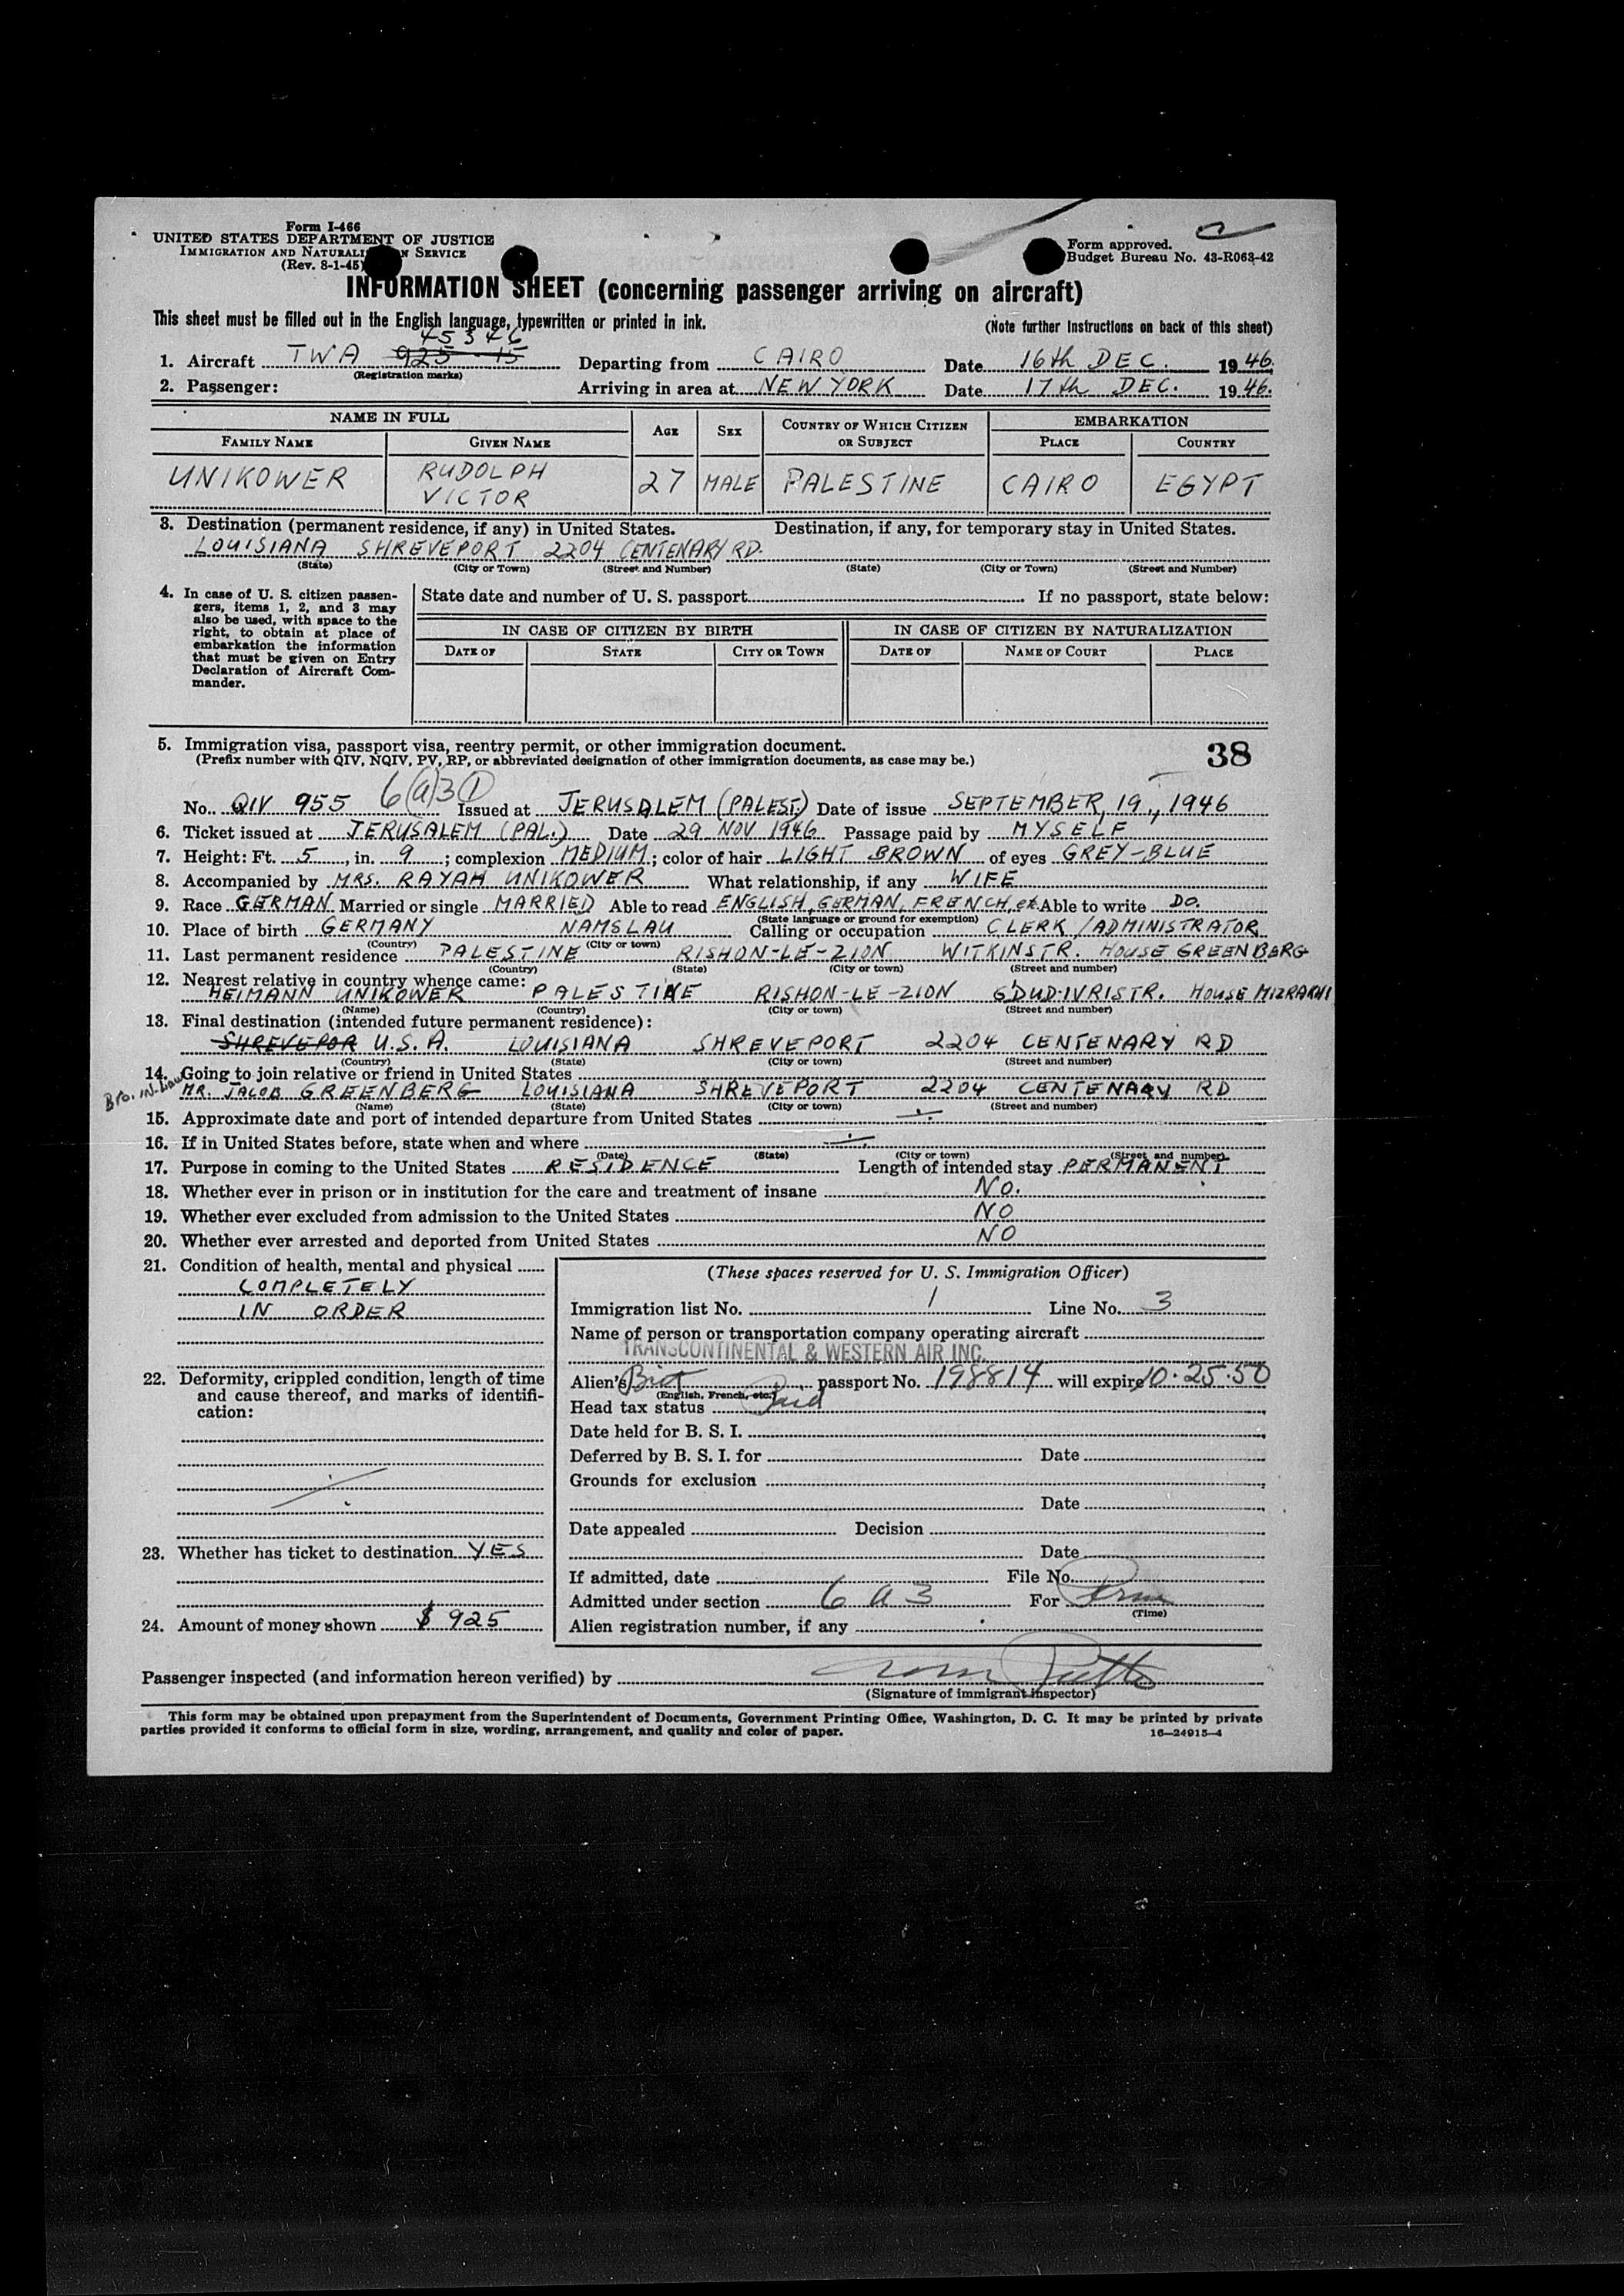 Form I-466
UNITED STATES DEPARTMENT OF JUSTICE
IMMIGRATION AND NATURALIZATION SERVICE
(Rev. 8-1-45)
Form approved.
Budget Bureau No. 43-R063-42
INFORMATION SHEET (concerning passenger arriving on aircraft)
This sheet must be filled out in the English language, typewritten or printed in ink. (Note further instructions on back of this sheet)
45346
1. Aircraft TWA 925 15 Departing from CAIRO Date 16th DEC. 1946.
(Registration marks)
2. Passenger: Arriving in area at NEW YORK Date 17th DEC. 1946.
NAME IN FULL AGE SEX COUNTRY OF WHICH CITIZEN OR SUBJECT EMBARKATION
FAMILY NAME GIVEN NAME PLACE COUNTRY
UNIKOWER RUDOLPH VICTOR 27 MALE PALESTINE CAIRO EGYPT
3. Destination (permanent residence, if any) in United States. Destination, if any, for temporary stay in United States.
LOUISIANA SHREVEPORT 2204 CENTENARY RD.
(State) (City or Town) (Street and Number) (State) (City or Town) (Street and Number)
4. In case of U. S. citizen passen-
gers, items 1, 2, and 3 may
also be used, with space to the
right, to obtain at place of
embarkation the information
that must be given on Entry
Declaration of Aircraft Com-
mander.
State date and number of U. S. passport If no passport, state below:
IN CASE OF CITIZEN BY BIRTH IN CASE OF CITIZEN BY NATURALIZATION
DATE OF STATE CITY OR TOWN DATE OF NAME OF COURT PLACE
5. Immigration visa, passport visa, reentry permit, or other immigration document. 38
(Prefix number with QIV, NQIV, PV, RP, or abbreviated designation of other immigration documents, as case may be.)
6(a)3(1)
No. QIV 955 Issued at JERUSALEM (PALEST.) Date of issue SEPTEMBER, 19., 1946
6. Ticket issued at JERUSALEM (PAL.) Date 29 NOV 1946 Passage paid by MYSELF
7. Height: Ft. 5, in. 9; complexion MEDIUM; color of hair LIGHT BROWN of eyes GREY-BLUE
8. Accompanied by MRS. RAYAH UNIKOWER What relationship, if any WIFE
9. Race GERMAN Married or single MARRIED Able to read ENGLISH, GERMAN, FRENCH, etc Able to write DO.
(State language or ground for exemption)
10. Place of birth GERMANY NAMSLAU Calling or occupation CLERK / ADMINISTRATOR
(Country) (City or town)
11. Last permanent residence PALESTINE RISHON-LE-ZION WITKINSTR. HOUSE GREENBERG
(Country) (State) (City or town) (Street and number)
12. Nearest relative in country whence came:
HEIMANN UNIKOWER PALESTINE RISHON-LE-ZION G'DUD-IVRISTR. HOUSE MIZRAHI
(Name) (Country) (City or town) (Street and number)
13. Final destination (intended future permanent residence):
SHREVEPOR U.S.A. LOUISIANA SHREVEPORT 2204 CENTENARY RD
(Country) (State) (City or town) (Street and number)
14. Going to join relative or friend in United States
Bro. in-law MR. JACOB GREENBERG LOUISIANA SHREVEPORT 2204 CENTENARY RD
(Name) (State) (City or town) (Street and number)
15. Approximate date and port of intended departure from United States
16. If in United States before, state when and where
(Date) (State) (City or town) (Street and number)
17. Purpose in coming to the United States RESIDENCE Length of intended stay PERMANENT
18. Whether ever in prison or in institution for the care and treatment of insane NO.
19. Whether ever excluded from admission to the United States NO
20. Whether ever arrested and deported from United States NO
21. Condition of health, mental and physical
COMPLETELY
IN ORDER
22. Deformity, crippled condition, length of time
and cause thereof, and marks of identifi-
cation:
23. Whether has ticket to destination YES
24. Amount of money shown $ 925
(These spaces reserved for U. S. Immigration Officer)
Immigration list No. 1 Line No. 3
Name of person or transportation company operating aircraft
TRANSCONTINENTAL & WESTERN AIR INC.
Alien's Brit passport No. 198814 will expire 10.25.50
(English, French, etc.)
Head tax status Paid
Date held for B. S. I.
Deferred by B. S. I. for Date
Grounds for exclusion
Date
Date appealed Decision
Date
If admitted, date File No.
Admitted under section 6 a 3 For Perm
(Time)
Alien registration number, if any
Passenger inspected (and information hereon verified) by
(Signature of immigrant inspector)
This form may be obtained upon prepayment from the Superintendent of Documents, Government Printing Office, Washington, D. C. It may be printed by private
parties provided it conforms to official form in size, wording, arrangement, and quality and color of paper. 16—24915-4